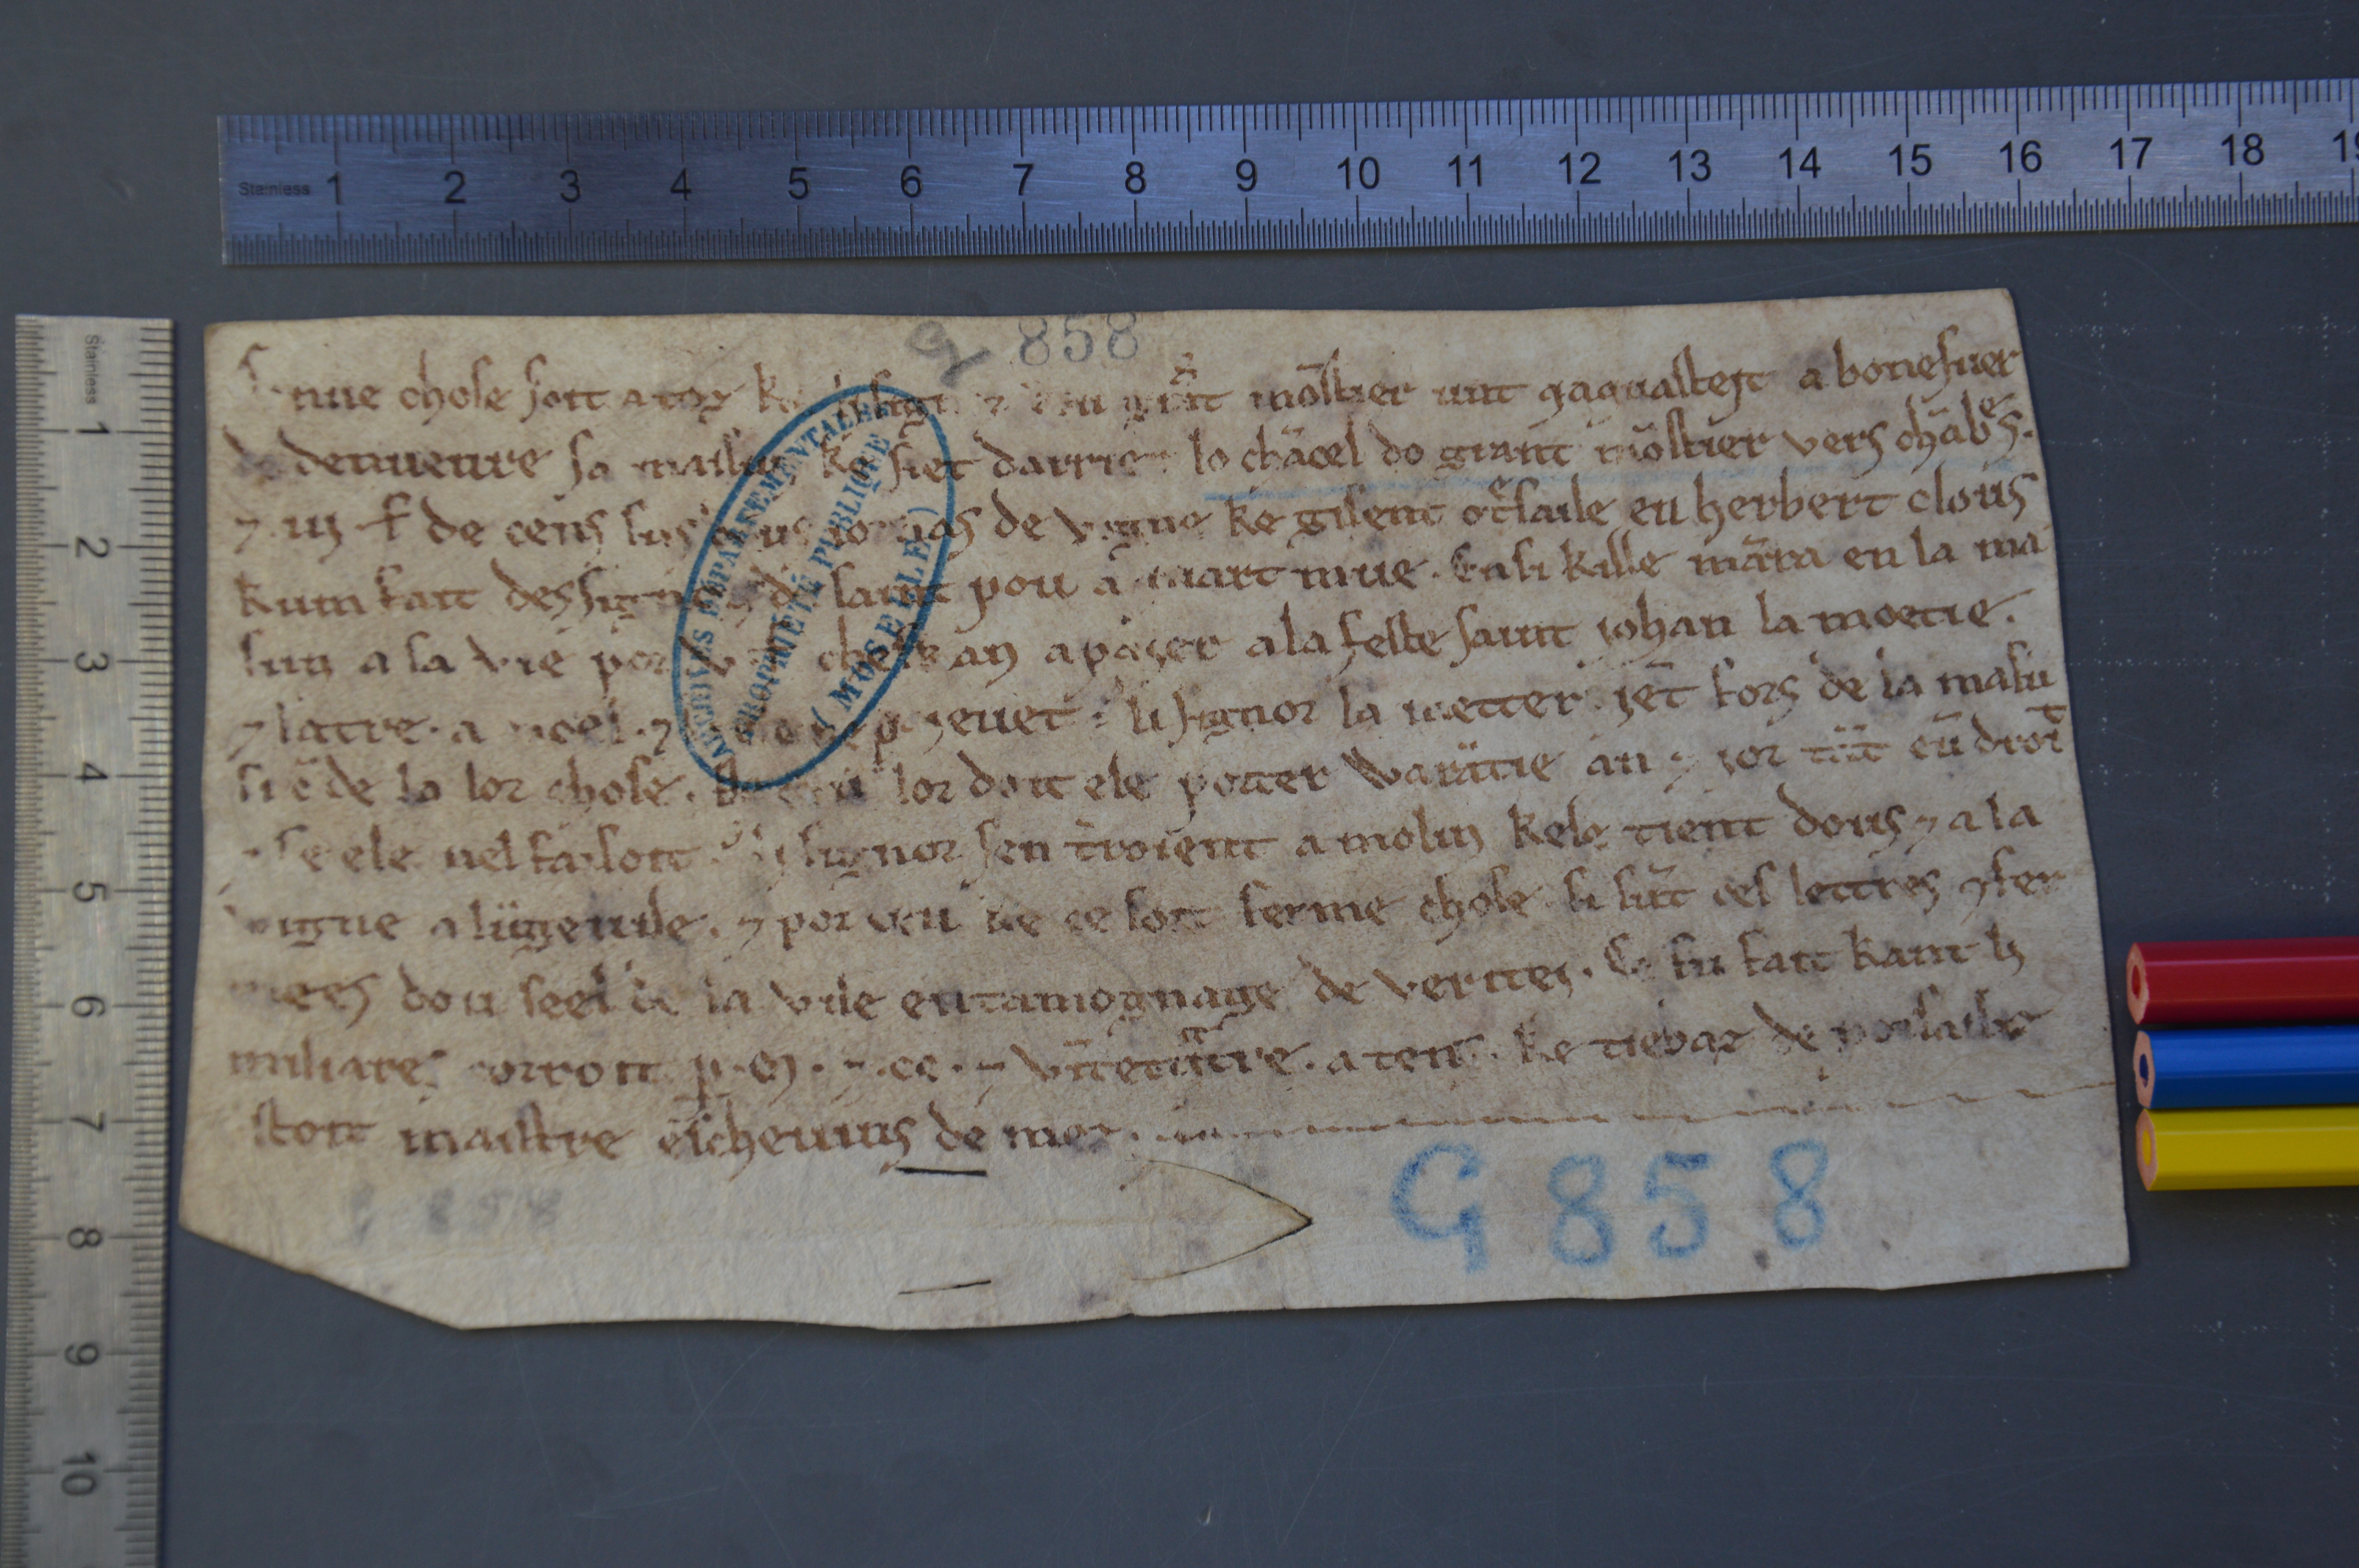 Stainless 1 2 3 4 5 6 7 8 9 10 11 12 13 14 15 16 17 18 19
Stainless 1 2 3 4 5 6 7 8 9 10
G 858
chose soit a toz mōstier unt gaquastest a bonesuer
de deuuenre sa maisun ke siet darrier lo chācel do grant mōstier vers chābes.
⁊ iij de cens sus ious iornas de vigne ke gisent herbert clous
kum fait des signors de saint pou a mart mue. Ensi kille māra en la mai
sun a sa vie por chesk an a paier a la feste saint iohan la moetie.
⁊ latre. a noel. ⁊ li signor la metter. fors de la maisu
de la lor chose. lor doit ele porter warātie an ⁊ ior
⁊ se ele nel faisoit. li signor sen troient a molin kele tient dous ⁊ a la
vigne a lūgeuile. ⁊ por ceu ke ce soit ferme chose si sūt ces lettres ⁊ fer
mees dou seel de la vile en tamognage de veritei. Ce fu fait kant li
miliares corroit p. m. ⁊ .cc. ⁊ a tens. ke
stoit maistre escheuins de mez.
ARCHIVES DÉPARTEMENTALES
PROPRIÉTÉ PUBLIQUE
( MOSELLE )
G 858
G 858